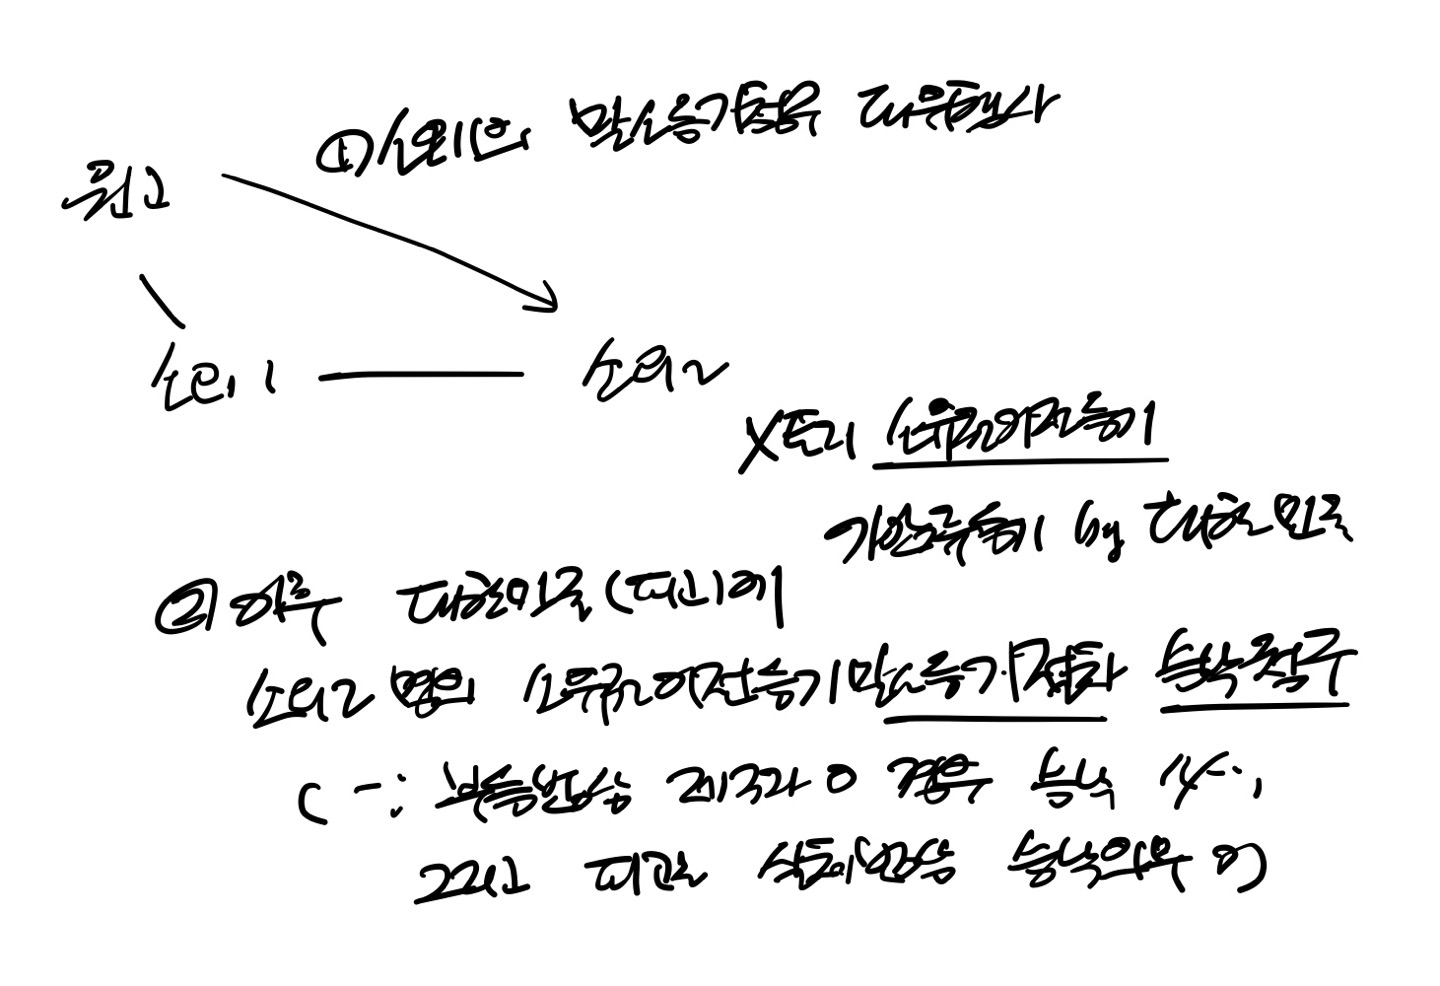 ①소외1의 말소등기청구 대위행사
원고
소외1
소외2
X토지 소유권이전등기
가압류등기 by 대한민국
②이후 대한민국(피고)에
소외2 명의 소유권이전등기말소등기절차 승낙청구
(-: 부등법상 제3자 0 경우 승낙
그리고 피고는 실체법상 승낙의무 0)